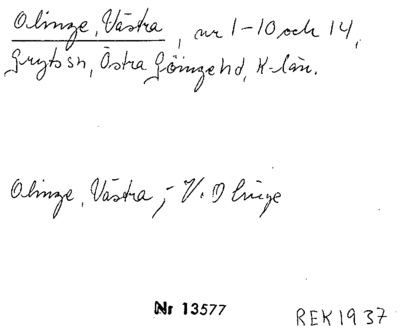 Olinge, Västra, nr 1-10 och 14,
Gryts sn, Östra Göinge hd, K-län.
Olinge, Västra,- V. Olinge
Nr 13577 REK 1937